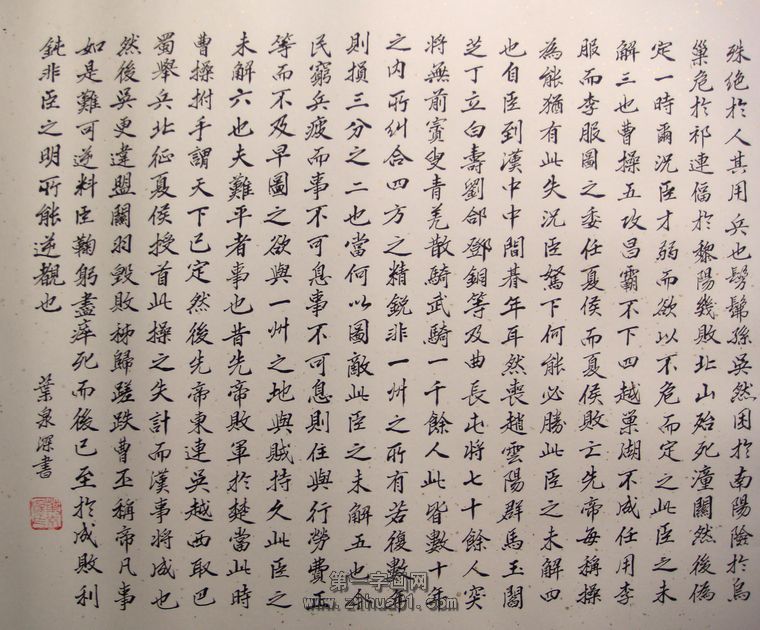 殊絶於人其用兵也髣髴孫吳然困於南陽險於烏
巢危於祁連偪於黎陽幾敗北山殆死潼關然後僞
定一時爾況臣才弱而欲以不危而定之此臣之未
解三也曹操五攻昌霸不下四越巢湖不成任用李
服而李服圖之委任夏侯而夏侯敗亡先帝每稱操
為能猶有此失況臣駑下何能必勝此臣之未解四
也自臣到漢中中間朞年耳然喪趙雲陽群馬玉閻
芝丁立白壽劉郃鄧銅等及曲長屯將七十餘人突
將無前賨叟青羌散騎武騎一千餘人此皆數十年
之内所糾合四方之精銳非一州之所有若復數年
則損三分之二也當何以圖敵此臣之未解五也今
民窮兵疲而事不可息事不可息則住與行勞費正
等而不及早圖之欲與一州之地與賊持久此臣之
未解六也夫難平者事也昔先帝敗軍於楚當此時
曹操拊手謂天下已定然後先帝東連吳越西取巴
蜀舉兵北征夏侯授首此操之失計而漢事將成也
然後吳更違盟關羽毀敗秭歸蹉跌曹丕稱帝凡事
如是難可逆料臣鞠躬盡瘁死而後已至於成敗利
鈍非臣之明所能逆覩也
葉泉深書
第一字画网
www.zihua01.com